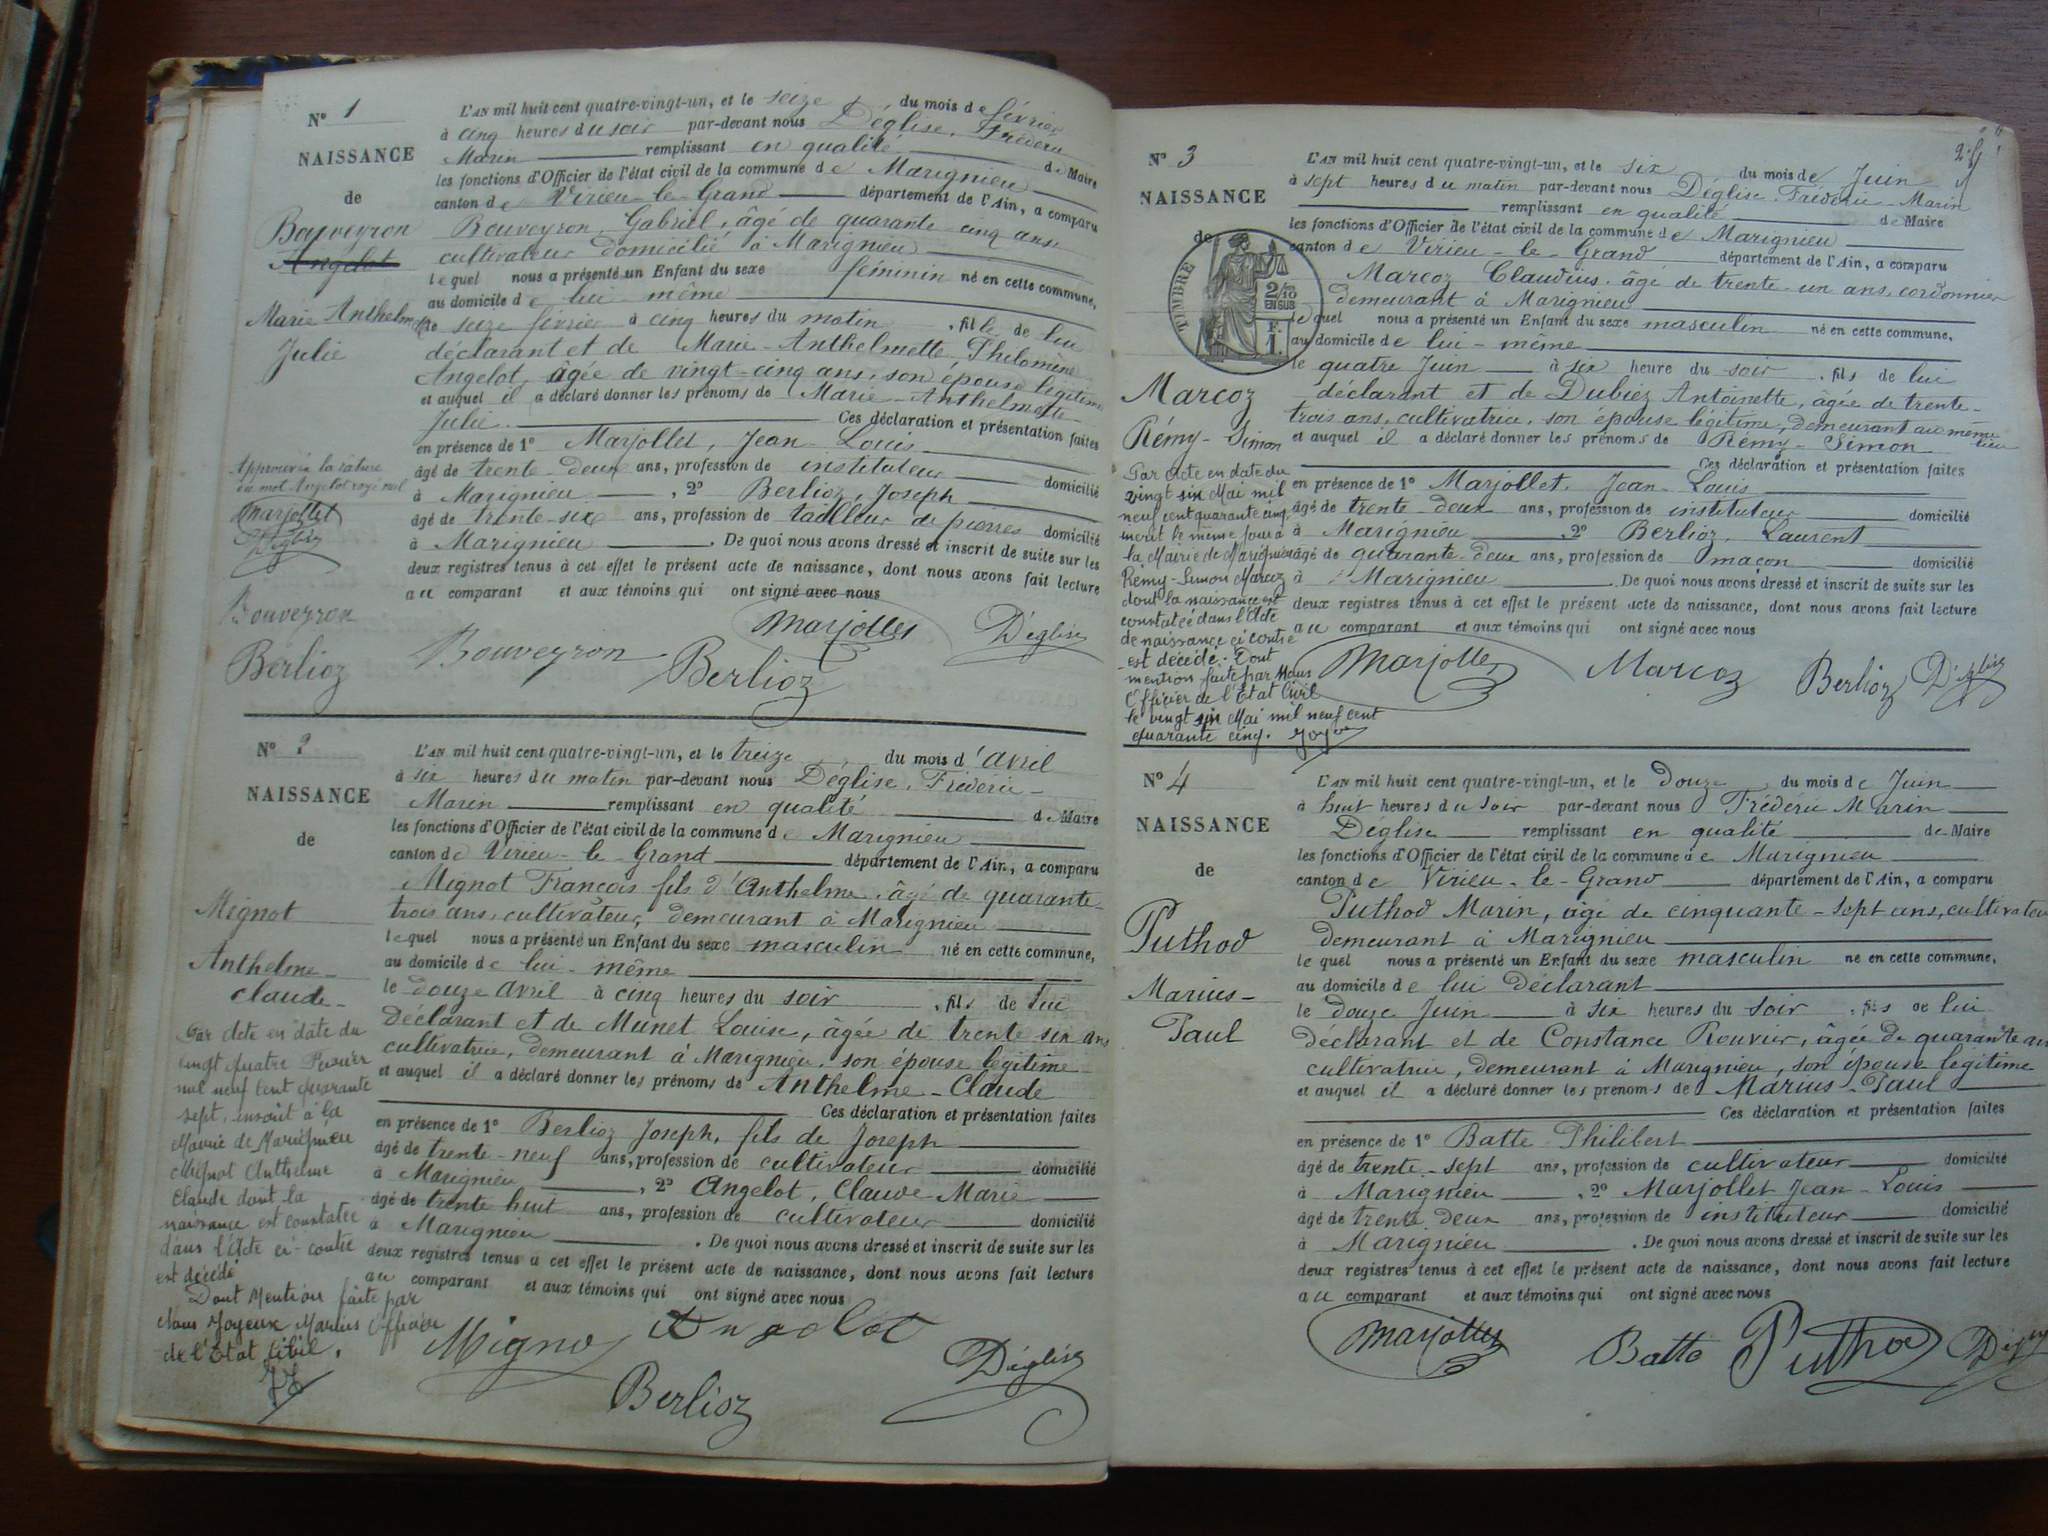 N° 1
NAISSANCE
de
Bouveyron
Angelot
Marie Anthelmette
Julie
L'AN mil huit cent quatre-vingt-un, et le seize du mois de février
à cinq heures du soir par-devant nous Déglise, Frédéric
Marin remplissant en qualité de Maire
les fonctions d'Officier de l'état civil de la commune de Marignieu
canton de Virieu-le-Grand département de l'Ain, a comparu
Bouveyron, Gabriel, âgé de quarante-cinq ans
cultivateur domicilié à Marignieu
lequel nous a présenté un Enfant du sexe féminin né en cette commune,
au domicile de lui-même
le seize février à cinq heures du matin, fille de lui
déclarant et de Marie-Anthelmette, Philomène
Angelot, âgée de vingt-cinq ans, son épouse légitime
et auquel il a déclaré donner les prénoms de Marie-Anthelmette
Julie Ces déclaration et présentation faites
en présence de 1° Marjollet, Jean-Louis
âgé de trente-deux ans, profession de instituteur domicilié
à Marignieu, 2° Berlioz, Joseph
âgé de trente-six ans, profession de tailleur de pierres domicilié
à Marignieu. De quoi nous avons dressé et inscrit de suite sur les
deux registres tenus à cet effet le présent acte de naissance, dont nous avons fait lecture
au comparant et aux témoins qui ont signé avec nous
Approuvée la rature
du mot Angelot rayé nul
Marjollet
Déglise
Bouveyron
Berlioz
Bouveyron Berlioz Marjollet Déglise
N° 2
NAISSANCE
de
Mignot
Anthelme-
Claude-
L'AN mil huit cent quatre-vingt-un, et le treize du mois d'avril
à six heures du matin par-devant nous Déglise, Frédéric-
Marin remplissant en qualité de Maire
les fonctions d'Officier de l'état civil de la commune de Marignieu
canton de Virieu-le-Grand département de l'Ain, a comparu
Mignot François fils d'Anthelme, âgé de quarante-
trois ans, cultivateur, demeurant à Marignieu
lequel nous a présenté un Enfant du sexe masculin né en cette commune,
au domicile de lui-même
le douze avril à cinq heures du soir, fils de lui
déclarant et de Munet Louise, âgée de trente six ans
cultivatrice, demeurant à Marignieu, son épouse légitime
et auquel il a déclaré donner les prénoms de Anthelme-Claude
Ces déclaration et présentation faites
en présence de 1° Berlioz Joseph, fils de Joseph
âgé de trente-neuf ans, profession de cultivateur domicilié
à Marignieu, 2° Angelot, Claude Marie
âgé de trente huit ans, profession de cultivateur domicilié
à Marignieu. De quoi nous avons dressé et inscrit de suite sur les
deux registres tenus à cet effet le présent acte de naissance, dont nous avons fait lecture
au comparant et aux témoins qui ont signé avec nous
Par acte en date du
vingt quatre
mil neuf cent quarante
sept, inscrit à la
Mairie de Marignieu
Mignot Anthelme
Claude dont la
naissance est constatée
dans l'Acte ci-contre
est décédé
Dont Mention faite par
Nous Joyeux Marius Officier
de l'Etat Civil.
Mignot Angelot
Berlioz Déglise
N° 3
NAISSANCE
de
TIMBRE
2/10
EN SUS
F.
1.
Marcoz
Rémy-Simon
L'AN mil huit cent quatre-vingt-un, et le six du mois de Juin
à sept heures du matin par-devant nous Déglise Frédéric-Marin
remplissant en qualité de Maire
les fonctions d'Officier de l'état civil de la commune de Marignieu
canton de Virieu-le-Grand département de l'Ain, a comparu
Marcoz Claudius, âgé de trente-un ans, cordonnier
demeurant à Marignieu
lequel nous a présenté un Enfant du sexe masculin né en cette commune,
au domicile de lui-même
le quatre Juin à six heure du soir, fils de lui
déclarant et de Dubiez Antoinette, âgée de trente-
trois ans, cultivatrice, son épouse légitime, demeurant au même
lieu
et auquel il a déclaré donner les prénoms de Rémy-Simon
Ces déclaration et présentation faites
en présence de 1° Marjollet, Jean-Louis
âgé de trente-deux ans, profession de instituteur domicilié
à Marignieu, 2° Berlioz, Laurent
âgé de quarante-deux ans, profession de maçon domicilié
à Marignieu. De quoi nous avons dressé et inscrit de suite sur les
deux registres tenus à cet effet le présent acte de naissance, dont nous avons fait lecture
au comparant et aux témoins qui ont signé avec nous
Par acte en date du
vingt six Mai mil
neuf cent quarante cinq
inscrit le même jour à
la Mairie de Marignieu
Rémy-Simon Marcoz
dont la naissance est
constatée dans l'Acte
de naissance ci contre
est décédé. Dont
mention faite par Nous
Officier de l'Etat Civil
le vingt six Mai mil neuf cent
quarante cinq.
Marjollet Marcoz Berlioz Déglise
N° 4
NAISSANCE
de
Puthod
Marius-
Paul
L'AN mil huit cent quatre-vingt-un, et le douze du mois de Juin
à huit heures du soir par-devant nous Frédéric Marin
Déglise remplissant en qualité de Maire
les fonctions d'Officier de l'état civil de la commune de Marignieu
canton de Virieu-le-Grand département de l'Ain, a comparu
Puthod Marin, âgé de cinquante-sept ans, cultivateur
demeurant à Marignieu
lequel nous a présenté un Enfant du sexe masculin né en cette commune,
au domicile de lui déclarant
le douze Juin à six heures du soir, fils de lui
déclarant et de Constance Rouvier, âgée de quarante ans
cultivatrice, demeurant à Marignieu, son épouse légitime
et auquel il a déclaré donner les prénoms de Marius-Paul
Ces déclaration et présentation faites
en présence de 1° Batte Philibert
âgé de trente-sept ans, profession de cultivateur domicilié
à Marignieu, 2° Marjollet Jean-Louis
âgé de trente deux ans, profession de instituteur domicilié
à Marignieu. De quoi nous avons dressé et inscrit de suite sur les
deux registres tenus à cet effet le présent acte de naissance, dont nous avons fait lecture
au comparant et aux témoins qui ont signé avec nous
Marjollet Batte Puthod Déglise